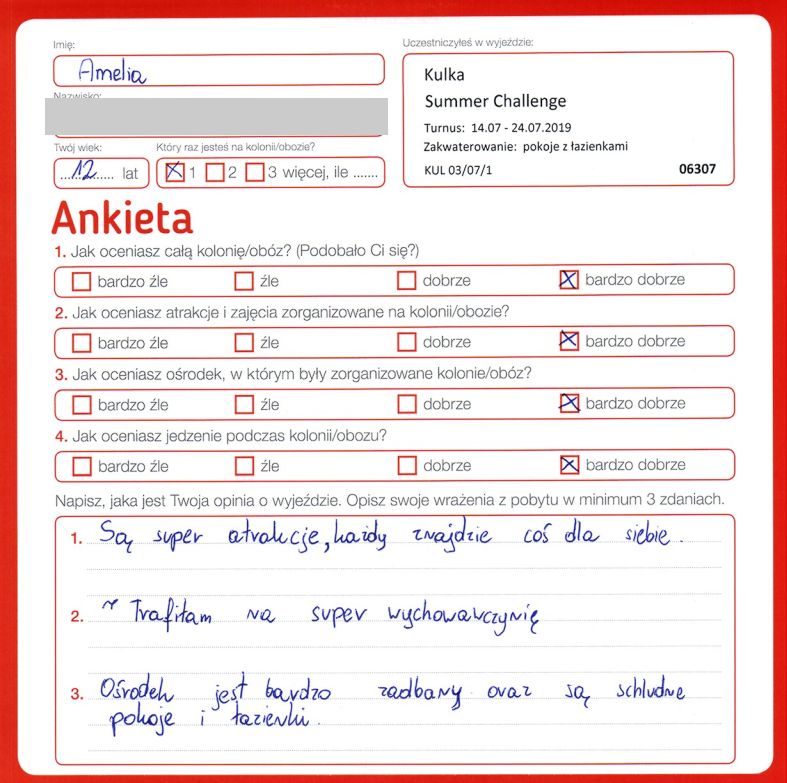 Imię:
Amelia
Uczestniczyłeś w wyjeździe:
Kulka
Summer Challenge
Turnus: 14.07 - 24.07.2019
Zakwaterowanie: pokoje z łazienkami
KUL 03/07/1 06307
Nazwisko:
Twój wiek: Który raz jesteś na kolonii/obozie?
....12...... lat 1 2 3 więcej, ile .......
Ankieta
1. Jak oceniasz całą kolonię/obóz? (Podobało Ci się?)
bardzo źle źle dobrze bardzo dobrze
2. Jak oceniasz atrakcje i zajęcia zorganizowane na kolonii/obozie?
bardzo źle źle dobrze bardzo dobrze
3. Jak oceniasz ośrodek, w którym były zorganizowane kolonie/obóz?
bardzo źle źle dobrze bardzo dobrze
4. Jak oceniasz jedzenie podczas kolonii/obozu?
bardzo źle źle dobrze bardzo dobrze
Napisz, jaka jest Twoja opinia o wyjeździe. Opisz swoje wrażenia z pobytu w minimum 3 zdaniach.
1. Są super atrakcje, każdy znajdzie coś dla siebie.
2. ~ Trafiłam na super wychowawczynię
3. Ośrodek jest bardzo zadbany oraz są schludne
pokoje i łazienki.